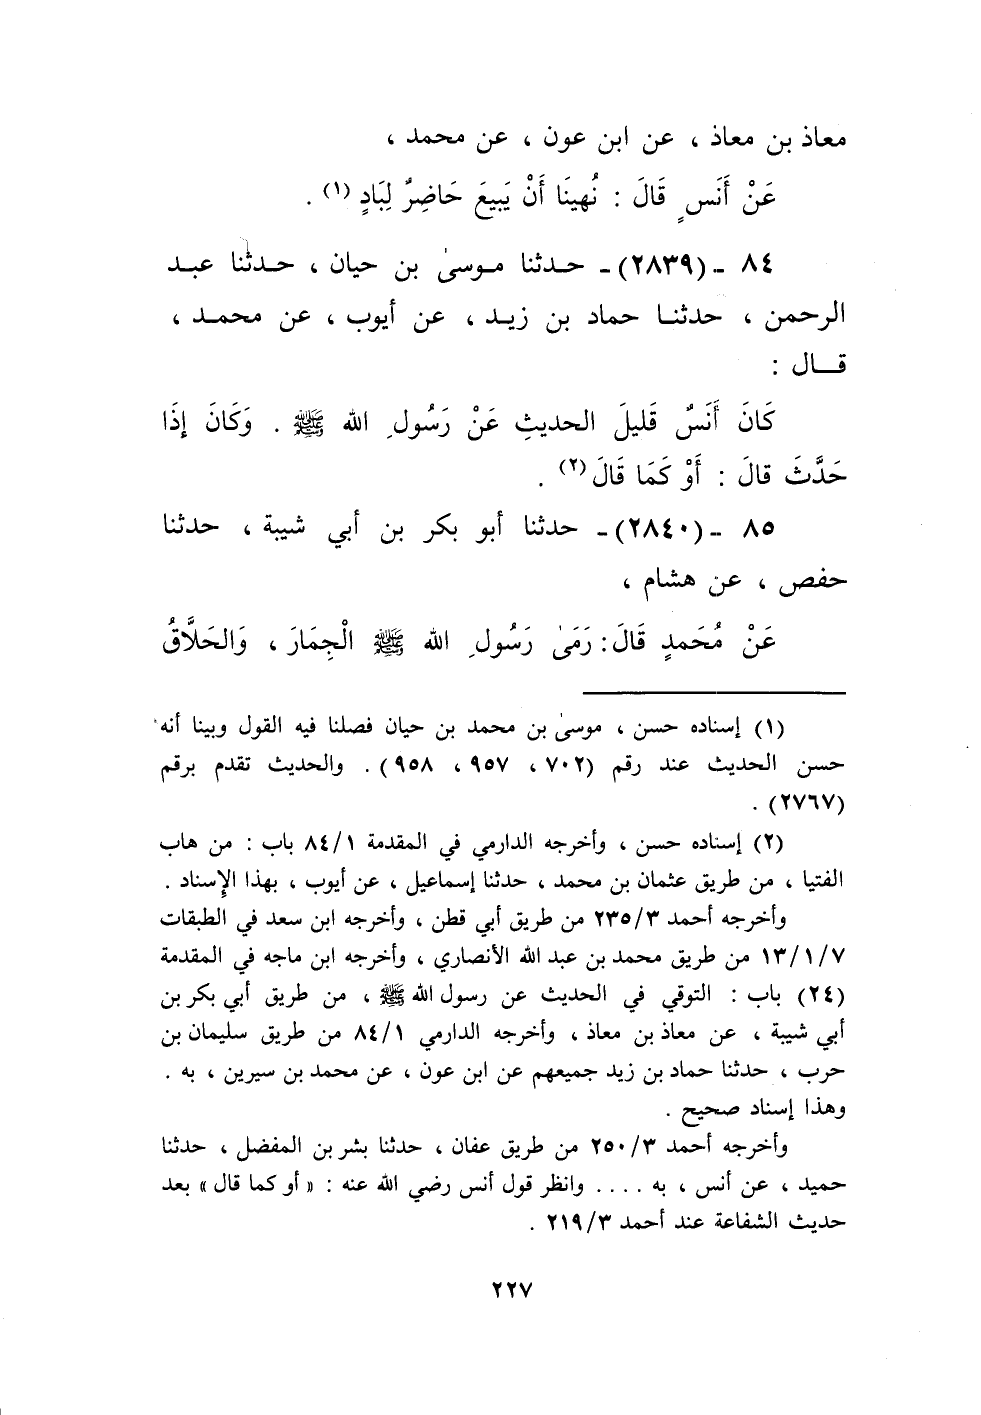 معاذ بن معاذ ، عن ابن عون ، عن محمد ،
عَنْ أَنَسٍ قَالَ : نُهِينَا أَنْ يَبِيعَ حَاضِرٌ لِبَادٍ (١) .
٨٤ ـ (٢٨٣٩) ـ حـدثنا مـوسىٰ بن حيان ، حـدثنا عبـد
الرحمن ، حدثنـا حماد بن زيـد ، عن أيوب ، عن محمـد ،
قـــال :
كَانَ أَنَسٌ قَلِيلَ الحديثِ عَنْ رَسُولِ الله ﷺ . وَكَانَ إِذَا
حَدَّثَ قالَ : أَوْ كَمَا قَالَ (٢) .
٨٥ ـ (٢٨٤٠) ـ حدثنا أبو بكر بن أبي شيبة ، حدثنا
حفص ، عن هشام ،
عَنْ مُحَمدٍ قَالَ : رَمَىٰ رَسُولِ الله ﷺ الْجِمَارَ ، وَالحَلَّاقُ
(١) إسناده حسن ، موسىٰ بن محمد بن حيان فصلنا فيه القول وبينا أنه
حسن الحديث عند رقم (٧٠٢ ، ٩٥٧ ، ٩٥٨) . والحديث تقدم برقم
(٢٧٦٧) .
(٢) إسناده حسن ، وأخرجه الدارمي في المقدمة ٨٤/١ باب : من هاب
الفتيا ، من طريق عثمان بن محمد ، حدثنا إسماعيل ، عن أيوب ، بهذا الإسناد .
وأخرجه أحمد ٢٣٥/٣ من طريق أبي قطن ، وأخرجه ابن سعد في الطبقات
١٣/١/٧ من طريق محمد بن عبد الله الأنصاري ، وأخرجه ابن ماجه في المقدمة
(٢٤) باب : التوقي في الحديث عن رسول الله ﷺ ، من طريق أبي بكر بن
أبي شيبة ، عن معاذ بن معاذ ، وأخرجه الدارمي ٨٤/١ من طريق سليمان بن
حرب ، حدثنا حماد بن زيد جميعهم عن ابن عون ، عن محمد بن سيرين ، به .
وهذا إسناد صحيح .
وأخرجه أحمد ٢٥٠/٣ من طريق عفان ، حدثنا بشر بن المفضل ، حدثنا
حميد ، عن أنس ، به .... وانظر قول أنس رضي الله عنه : « أو كما قال » بعد
حديث الشفاعة عند أحمد ٢١٩/٣ .
٢٢٧